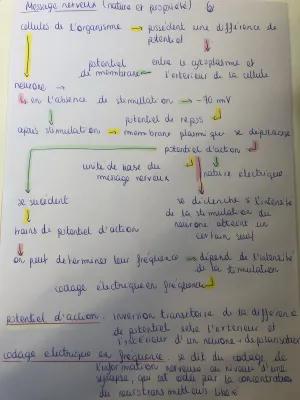 Message nerveux (nature et propriété)
cellules de l'organisme → possèdent une différence de
potentiel
potentiel entre le cytoplasme et
de membrane l'extérieur de la cellule
neurone →
en l'absence de stimulation → -70 mV
potentiel de repos
après stimulation → membrane plasmique se dépolarise
potentiel d'action
unité de base du
message nerveux
nature électrique
se succèdent
se déclenche si l'intensité
de la stimulation du
neurone atteint un
certain seuil
trains de potentiel d'action
on peut déterminer leur fréquence → dépend de l'intensité
de la stimulation
codage électrique en fréquence
potentiel d'action : inversion transitoire de la différence
de potentiel entre l'extérieur et
l'intérieur d'un neurone = dépolarisation
codage électrique en fréquence : se dit du codage de
l'information nerveuse au niveau d'une
synapse, qui est codée par la concentration
du neurotransmetteur libéré